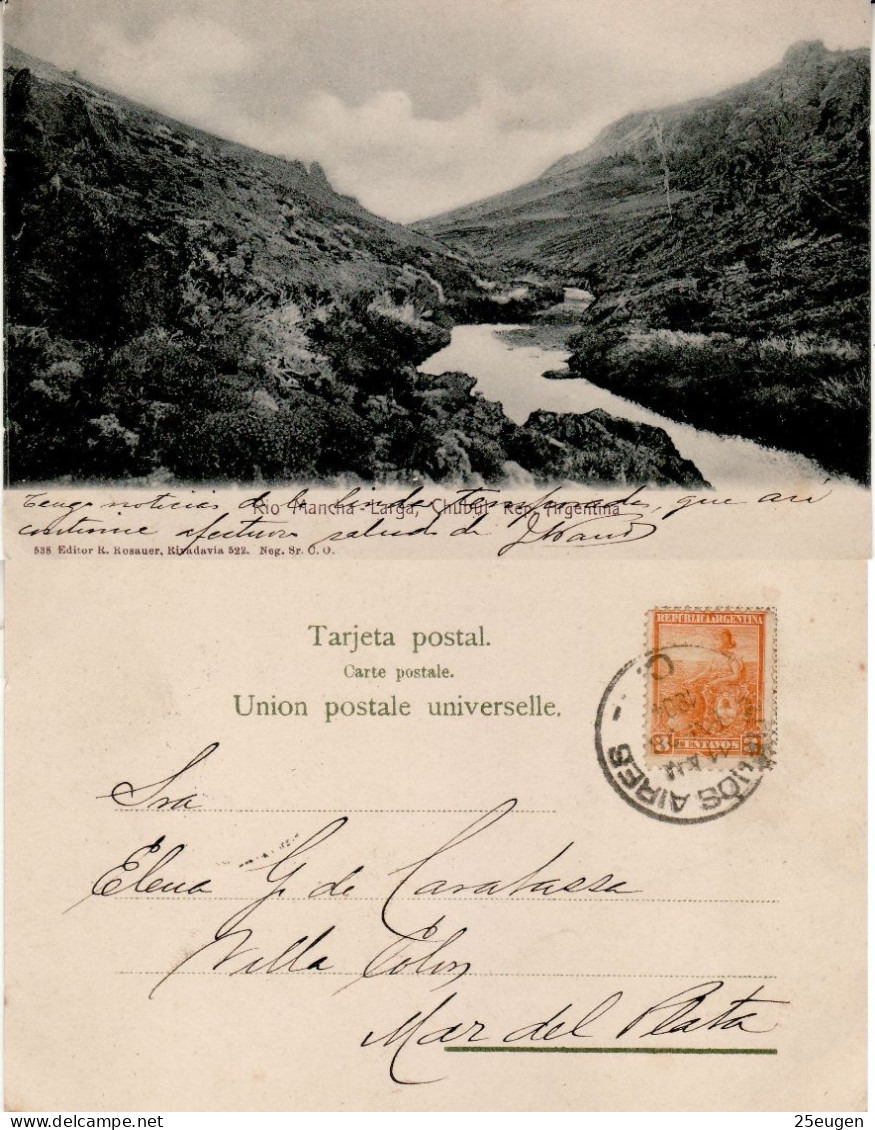 Tengo noticias de la linda temporada, que así
Rio Mancha Larga, Chubut Rep. Argentina
continue afectuoso saludo de
538 Editor R. Rosauer, Rivadavia 522. Neg. Sr. C. O.
Tarjeta postal.
Carte postale.
Union postale universelle.
REPUBLICA ARGENTINA
3 CENTAVOS 3
BUENOS AIRES
Sra
Elena G. de Carabassa
Villa Colon
Mar del Plata
25eugen
Delcampe.net